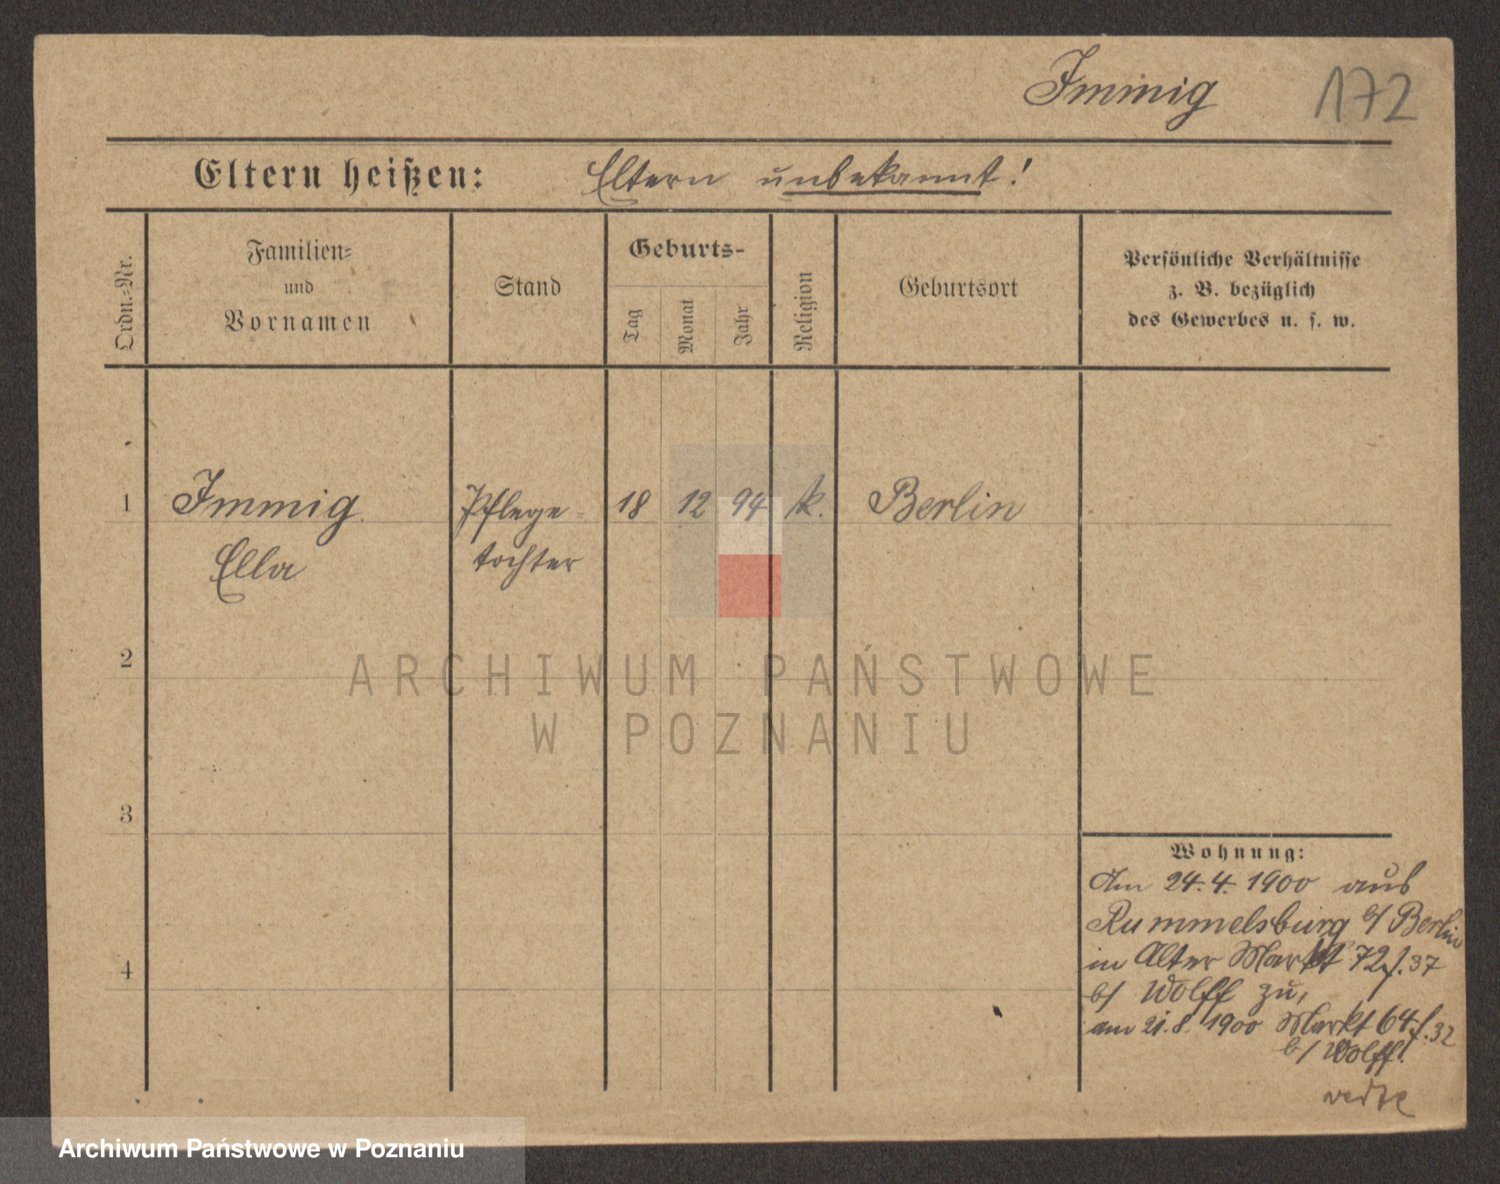 Immig 172
Eltern heißen: Eltern unbekannt!
Ordn.-Nr.
Familien-
und
Vornamen
Stand
Geburts-
Tag
Monat
Jahr
Religion
Geburtsort
Persönliche Verhältnisse
z. B. bezüglich
des Gewerbes u. s. w.
1 Immig Pflege- 18 12 94 k. Berlin
Ella tochter
2
3
4
Wohnung:
Am 24.4.1900 aus
Rummelsburg b/ Berlin
in Alter Markt 72 f. 37
b/ Wolff zu,
am 21.8.1900 Markt 64 f. 32
b/ Wolff!
ARCHIWUM PAŃSTWOWE
W POZNANIU
Archiwum Państwowe w Poznaniu